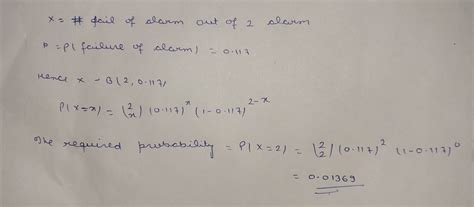 x = # fail of alarm out of 2 alarm
p = P( failure of alarm) = 0.117
Hence x ~ B(2, 0.117)
P(x=x) = (2 x) (0.117)^x (1-0.117)^2-x
The required probability = P(x=2) = (2 2) (0.117)^2 (1-0.117)^0
= 0.01369